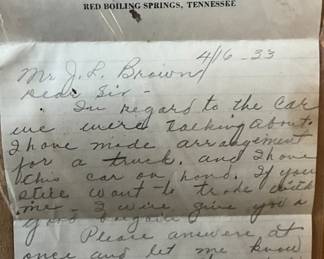 RED BOILING SPRINGS, TENNESSEE
4/16-33
Mr J. L. Brown
Dear Sir -
In regard to the car
we were talking about.
I have made arrangement
for a truck. and I have
this car on hand. If you
still want to trade with
me - I will give you a
good bargain
Please answere at
once and let me know